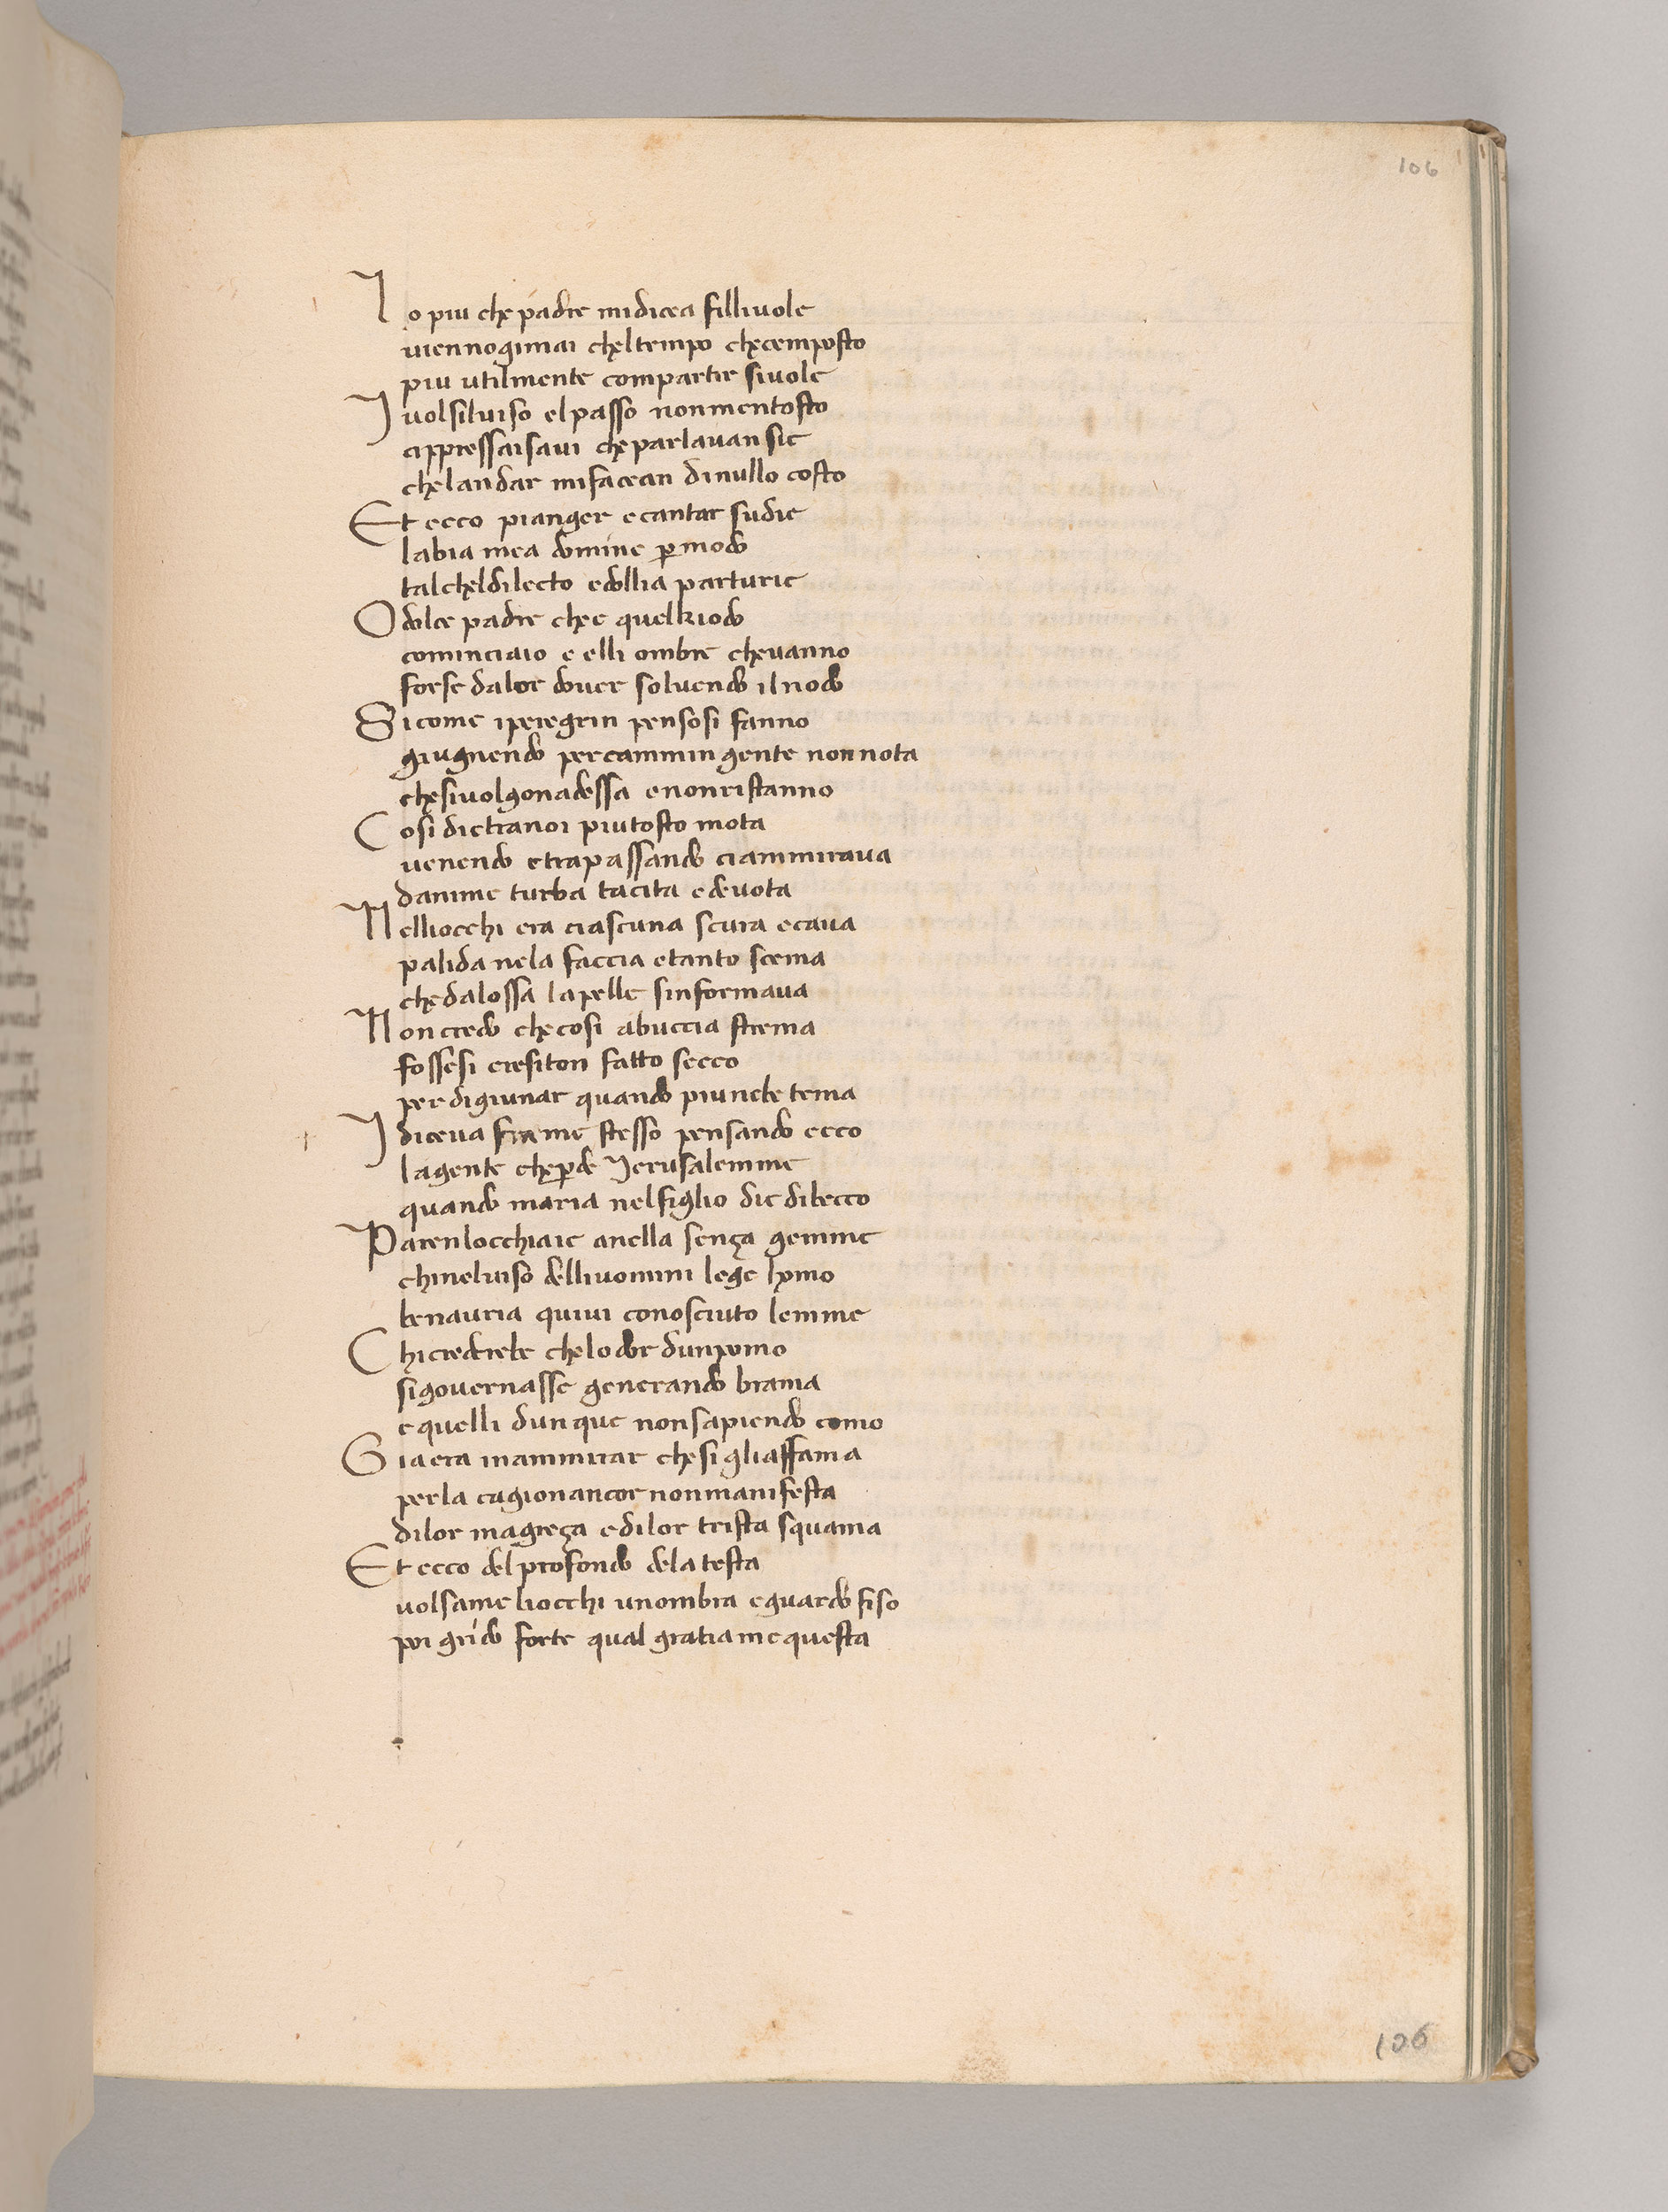 106
Io piu che padre midicea fillivole
viennoqimai cheltempo checemposto
piu utilmente compartir sivole
I volsiluiso elpasso nonmentosto
appressaisavi cheparlavansie
chelandar mifacean dinullo costo
Et ecco pianger ecantar sudie
labia mea domine per modo
talcheldilecto edollia parturie
O dolce padre chee quelkiodo
cominciaio e elli ombre chevanno
forse dalor dover solvendo ilnodo
Si come iperegrin pensosi fanno
giugnendo percammin gente nonnota
chesivolgonadessa enonristanno
Cosi dietranoi piutosto mota
venendo etrapassando ciammirava
danime turba tacita edevota
Nelliocchi era ciascuna scura ecava
palida nela faccia etanto scema
chedalossa lapelle sinformava
Non credo checosi abuccia strema
fossesi eresiton fatto secco
perdigiunar quando piunebe tema
I diceva frame stesso pensando ecco
lagente cheperde Jerusalemme
quando maria nelfiglio die dibecco
Parenlocchiaie anella sença gemme
chineluiso dellivomini lege lomo
benauria quivi conosciuto lemme
Chicrederebe chelodor dunpomo
sigovernasse generando brama
equelli dunque nonsapiendo como
Gia era inammirar chesi gliaffama
perla cagionancor nonmanifesta
dilor magreça edilor trista squama
Et ecco delprofondo dela testa
volsame liocchi unombra eguardo fiso
poi grido forte qual gratiamequesta
106